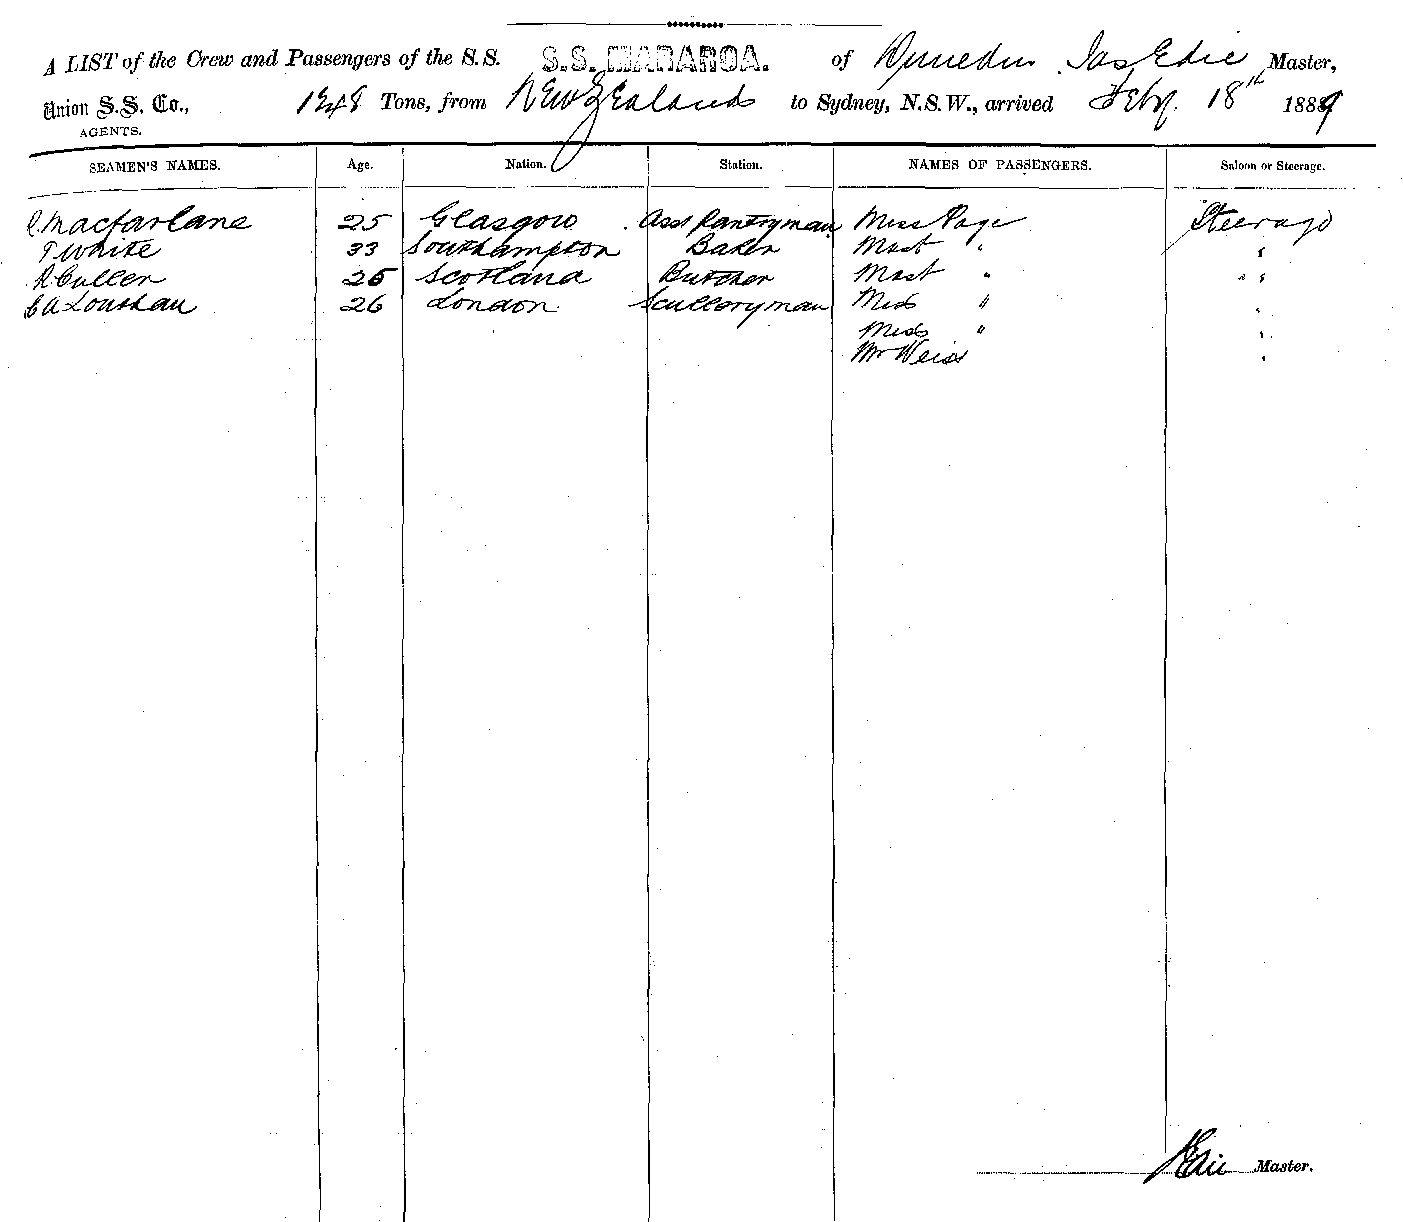 A LIST of the Crew and Passengers of the S.S. S.S. MARAROA. of Dunedin Jas Edie Master,
Union S.S. Co., 1248 Tons, from New Zealand to Sydney, N.S.W., arrived Feby. 18th 1889
AGENTS.
SEAMEN'S NAMES. Age. Nation. Station. NAMES OF PASSENGERS. Saloon or Steerage.
Macfarlane 25 Glasgow Asst Pantryman Miss Page Steerage
T White 33 Southampton Baker Mast " "
Cullen 25 Scotland Butcher Mast " " "
26 London Sculleryman Miss " "
Miss " "
Mr Weiss "
Edie Master.